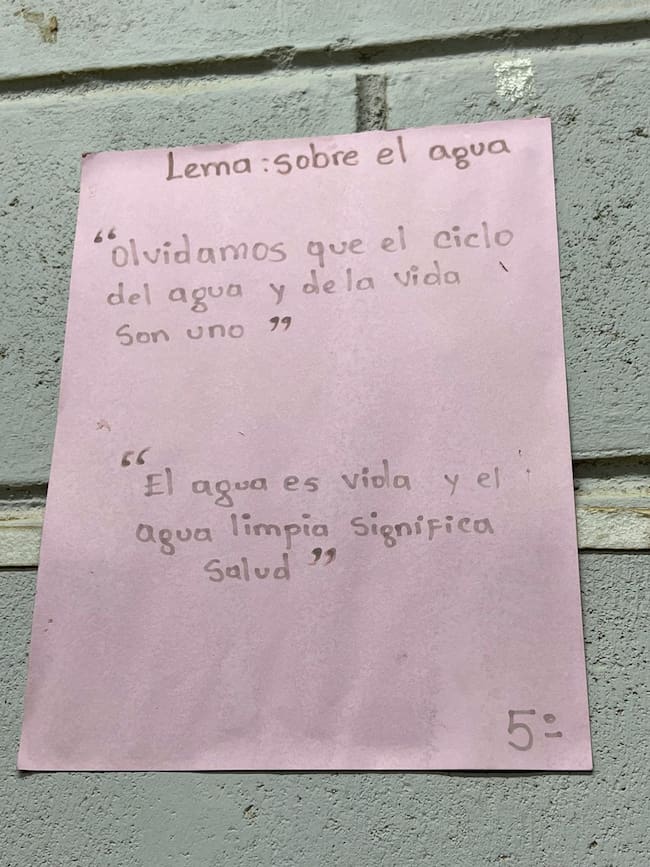 Lema: sobre el agua
“Olvidamos que el ciclo
del agua y de la vida
son uno”
“El agua es vida y el
agua limpia significa
salud”
5º